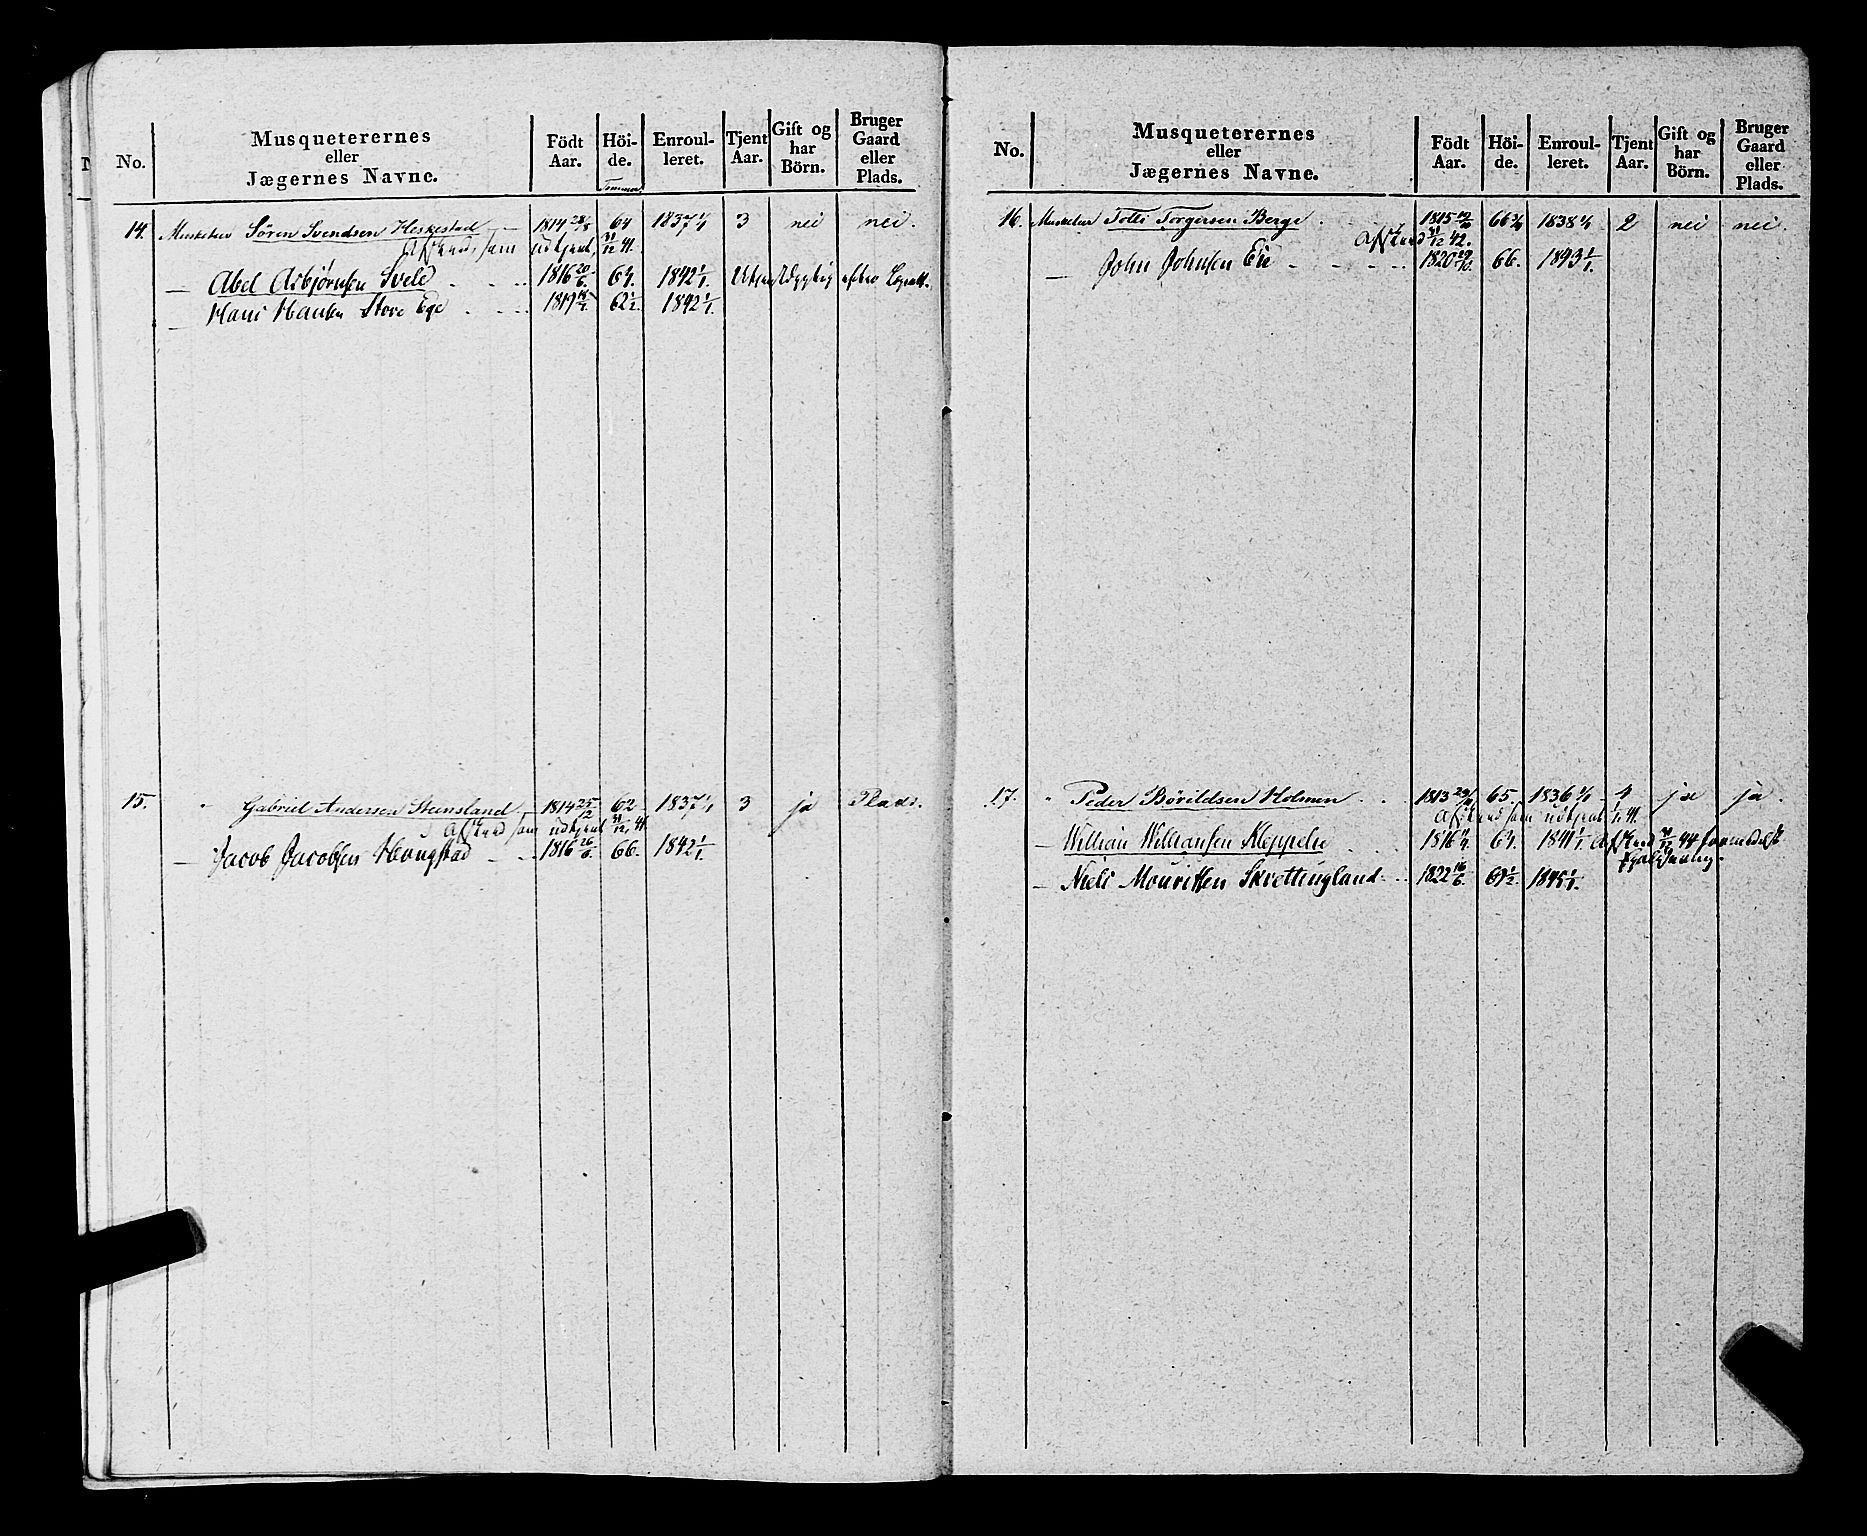 No.
Musqueterernes
eller
Jægernes Navne.
Födt
Aar.
Höi-
de.
Enroul-
leret.
Tjent
Aar.
Gift og
har
Börn.
Bruger
Gaard
eller
Plads.
14. Musketeer Sören Svendsen Heskestad 1814 28/8 64 1837 1/1 3 nei nei.
Afskeed som udtjent 31/12 41.
— Abel Asbjørnsen Sveld 1816 20/6. 64. 1842 1/1. efter
— Hans Hansen Store Ege 1819 62 1/2. 1842 1/1.
15. " Gabriel Andersen Steensland 1814 25/12 62 1837 1/1 3 ja Plads.
Afskeed som udtjent 31/12 41.
— Jacob Jacobsen Haugstad 1816 26/6. 66. 1842 1/1.
No.
Musqueterernes
eller
Jægernes Navne.
Födt
Aar.
Höi-
de.
Enroul-
leret.
Tjent
Aar.
Gift og
har
Börn.
Bruger
Gaard
eller
Plads.
16. Musketeer Torgersen Berge 1815 66 3/4 1838 1/1 2 nei nei.
Afskeed 31/12 42.
— John Johnsen Eie 1820 29/10. 66. 1843 1/1.
17. " Peder Börildsen Holmen 1813 65. 1836 1/1 4 ja ja.
Afskeed som udtjent 1/1 41.
— William Willumsen Kleppelie 1816 64. 1841 1/1 Afskeed 31/12 44 formedelst
— Niels Mouritsen Skrettingland 1822 16/6. 69 1/2. 1845 1/1.